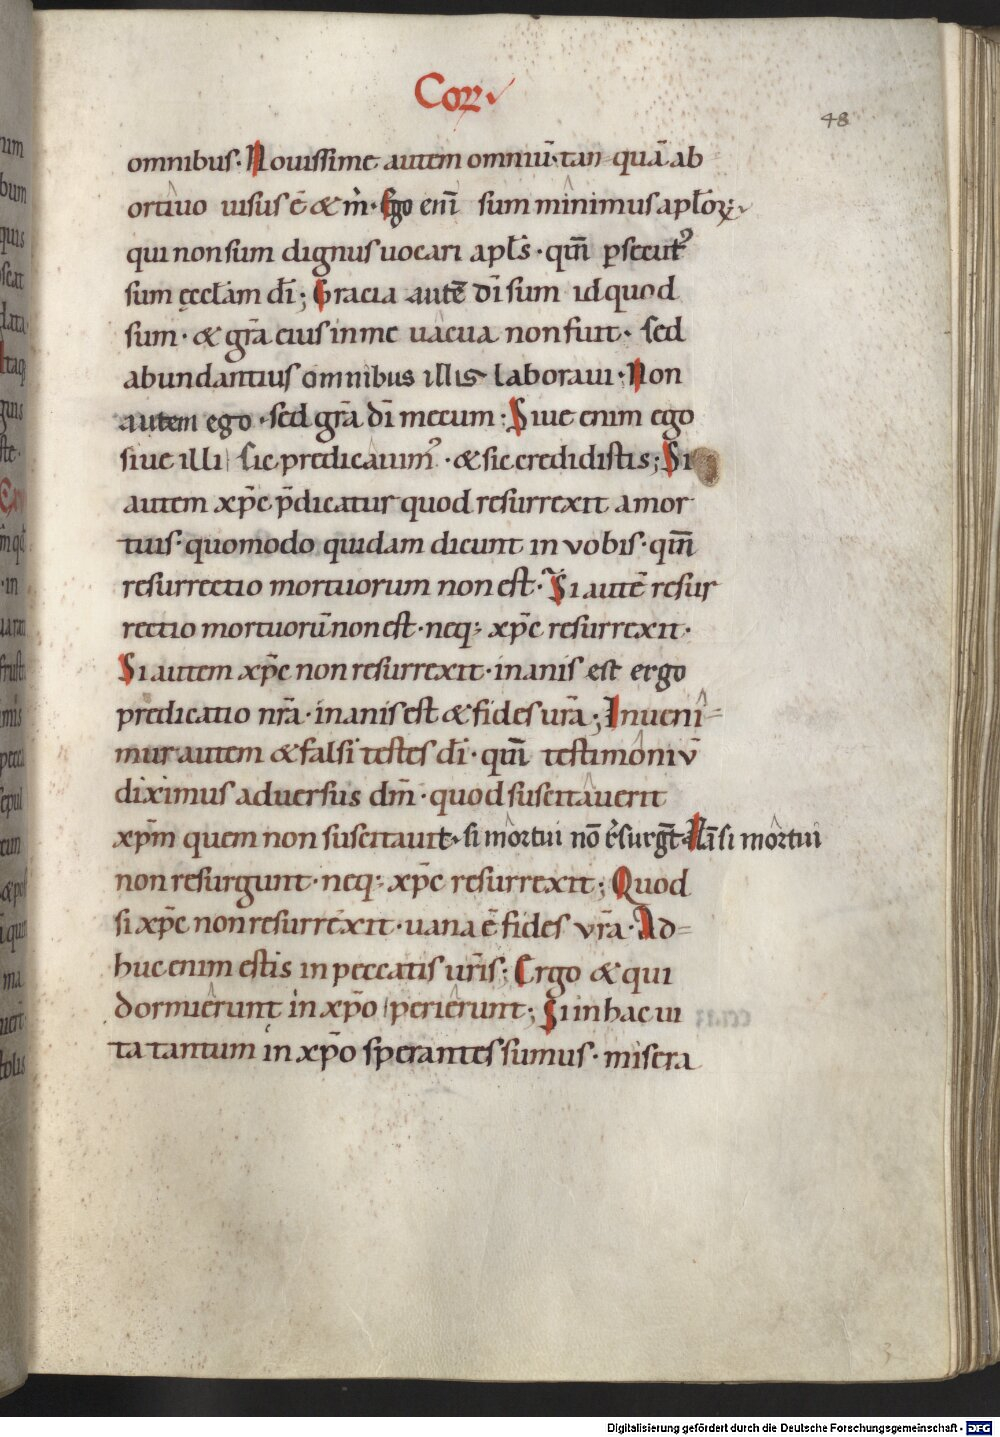 Corꝝ.
48
omnibus. Nouissime autem omniū. tan-quā ab
ortiuo uisus ē & m̍. Ego eni̅ sum minimus apl̄orꝝ;
qui non sum dignus uocari apl̄s. qm̄ ꝑsecut᷒
sum ęccl̄am dī; Gracia autē dī sum id quod
sum. & gr̄a eius in me uacua non fuit. sed
abundantius omnibus illis laboraui. Non
autem ego. sed gr̄a dī mecum. Siue enim ego
siue illi sic predicauim᷒. & sic credidistis; Si
autem xp̄c p̄dicatur quod resurrexit a mor
tuis. quomodo quidam dicunt in vobis. qm̄
resurrectio mortuorum non est. Si autē resur
rectio mortuorū non est. neq; xp̄c resurrexit.
Si autem xp̄c non resurrexit. inanis est ergo
predicatio nr̄a. inanis est & fides ur̄a; Inueni-
mur autem & falsi testes dī. qm̄ testimoniv̄
diximus aduersus dm̄. quod suscitauerit
xp̄m quem non suscitauit. si mortui nō resurgt̄. Nā si mortui
non resurgunt. neq; xp̄c resurrexit; Quod
si xp̄c non resurrexit. uana ē fides vr̄a. Ad-
huc enim estis in peccatis ur̄is; Ergo & qui
dormierunt in xp̄o perierunt; Si in hac ui
ta tantum in xp̄o sperantes sumus. misera
3
Digitalisierung gefördert durch die Deutsche Forschungsgemeinschaft - DFG